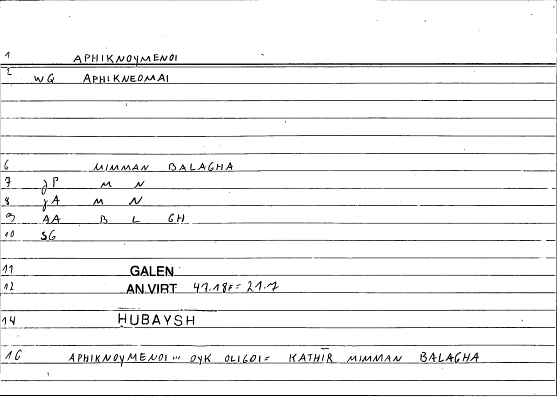 1 APHIKNOYMENOI
2 WQ APHIKNEOMAI
6 MIMMAN BALAGHA
7 jP M N
8 jA M N
9 AA B L GH
10 SG
11 GALEN
12 AN.VIRT 47.18F = 21.7
14 HUBAYSH
16 APHIKNOYMENOI... OYK OLIGOI = KATHĪR MIMMAN BALAGHA